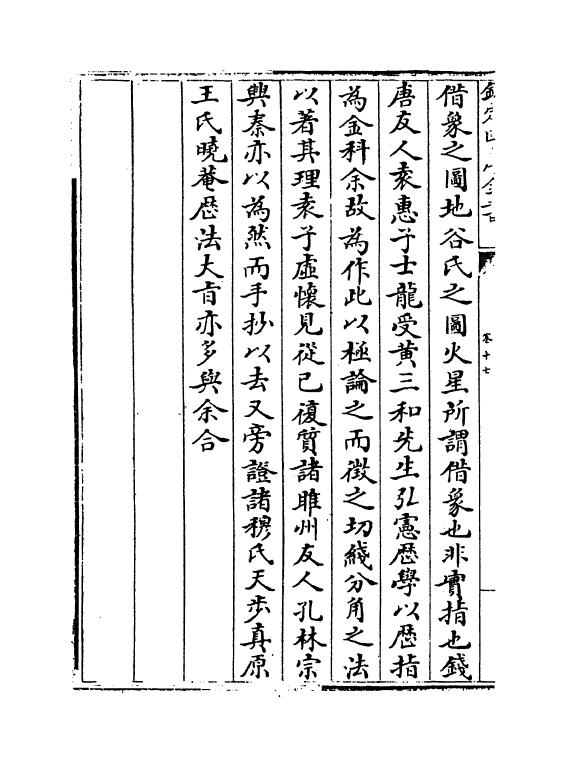 欽定四庫全書
卷十七
借象之圖地谷氏之圖火星所謂借象也非實指也錢
唐友人袁惠子士龍受黃三和先生弘憲歴學以歴指
為金科余故為作此以極論之而徵之切綫分角之法
以著其理袁子虛懐見從已復質諸睢州友人孔林宗
興泰亦以為然而手抄以去又旁證諸穆氏天步真原
王氏曉菴歴法大㫖亦多與余合